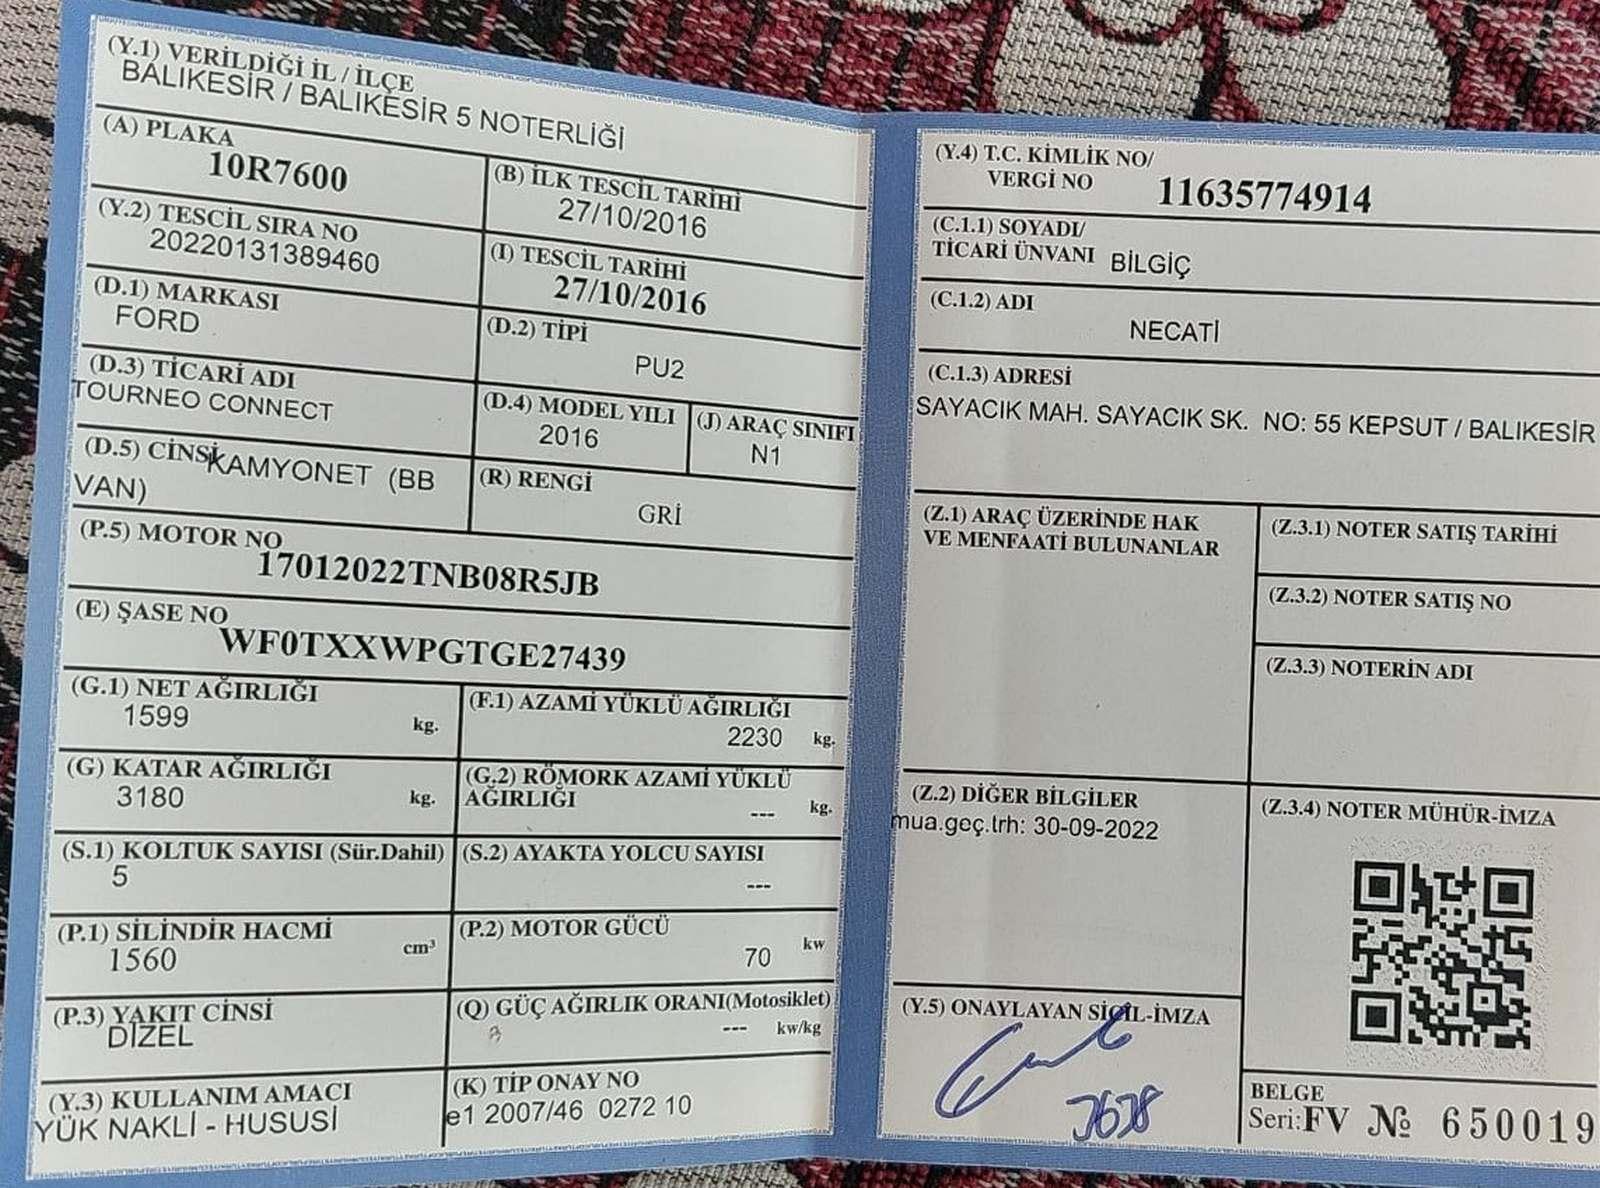 (Y.1) VERİLDİĞİ İL / İLÇE
BALIKESİR / BALIKESİR 5 NOTERLİĞİ
(A) PLAKA
10R7600
(B) İLK TESCİL TARİHİ
27/10/2016
(Y.2) TESCİL SIRA NO
20220131389460
(I) TESCİL TARİHİ
27/10/2016
(D.1) MARKASI
FORD
(D.2) TİPİ
PU2
(D.3) TİCARİ ADI
TOURNEO CONNECT
(D.4) MODEL YILI
2016
(J) ARAÇ SINIFI
N1
(D.5) CİNSİ
KAMYONET (BB
VAN)
(R) RENGİ
GRİ
(P.5) MOTOR NO
17012022TNB08R5JB
(E) ŞASE NO
WF0TXXWPGTGE27439
(G.1) NET AĞIRLIĞI
1599 kg.
(F.1) AZAMİ YÜKLÜ AĞIRLIĞI
2230 kg.
(G) KATAR AĞIRLIĞI
3180 kg.
(G.2) RÖMORK AZAMİ YÜKLÜ
AĞIRLIĞI
--- kg.
(S.1) KOLTUK SAYISI (Sür.Dahil)
5
(S.2) AYAKTA YOLCU SAYISI
---
(P.1) SİLİNDİR HACMİ
1560 cm³
(P.2) MOTOR GÜCÜ
70 kw
(P.3) YAKIT CİNSİ
DİZEL
(Q) GÜÇ AĞIRLIK ORANI(Motosiklet)
--- kw/kg
(Y.3) KULLANIM AMACI
YÜK NAKLİ - HUSUSİ
(K) TİP ONAY NO
e1 2007/46 0272 10
(Y.4) T.C. KİMLİK NO/
VERGİ NO
11635774914
(C.1.1) SOYADI/
TİCARİ ÜNVANI BİLGİÇ
(C.1.2) ADI
NECATİ
(C.1.3) ADRESİ
SAYACIK MAH. SAYACIK SK. NO: 55 KEPSUT / BALIKESİR
(Z.1) ARAÇ ÜZERİNDE HAK
VE MENFAATİ BULUNANLAR
(Z.3.1) NOTER SATIŞ TARİHİ
(Z.3.2) NOTER SATIŞ NO
(Z.3.3) NOTERİN ADI
(Z.2) DİĞER BİLGİLER
mua.geç.trh: 30-09-2022
(Z.3.4) NOTER MÜHÜR-İMZA
(Y.5) ONAYLAYAN SİCİL-İMZA
BELGE
Seri:FV № 650019